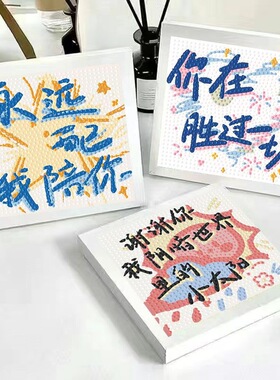 永远
而已
我陪你
你在
胜过一切
谢谢你
我阴暗世界
里的
小太阳